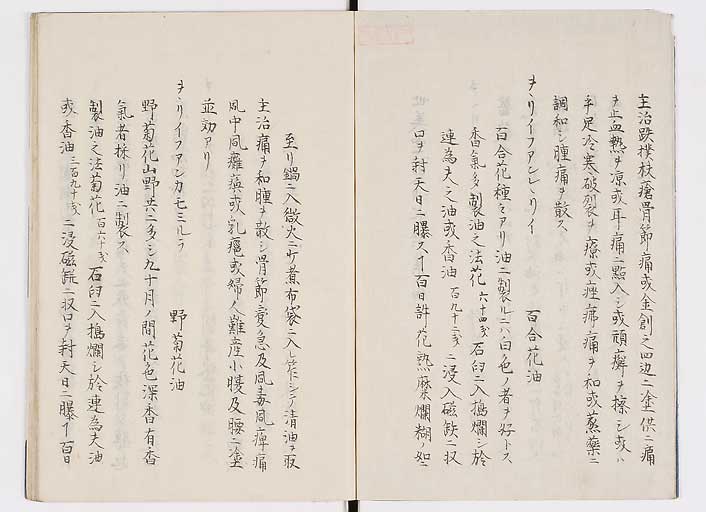 主治跌撲杖瘡骨節痛或金創之四辺ニ塗供ニ痛
ヲ止血熱ヲ凉或耳痛ニ點入シ或頑癬ヲ擦シ或ハ
手足冷寒破裂ヲ療或痙痛ヲ和或蒸藥ニ
調和シ腫痛ヲ散ス
ヲヽリイフアンレヽリイ 百合花油
百合花種ミアリ油ニ製ルニハ白色ノ者ヲ好トス
香氣多製油之法花六十四戔石臼ニ入搗爛シ於
連為夫之油或香油百九十二戔ニ浸入磁缾ニ収
口ヲ封天日ニ曝スヿ百日許花熟糜爛糊ノ如ニ
至リ鍋ニ入微火ニケ煮布袋ニ入シ清油ヲ取
主治痛ヲ和腫ヲ散シ骨節攣急及風毒風痺痛
風中風癱瘓或乳癰或婦人難産小腹及腰ニ塗
並効アリ
ヲヽリイフアンカモミルラ 野菊花油
野菊花山野共ニ多シ九十月ノ間花色深香有香
氣者採リ油ニ製ス
製油之法菊花百六十戔石臼ニ入搗爛シ於連為夫油
或香油三百九十戔ニ浸磁缾ニ収口ヲ封天日ニ曝ヿ百日